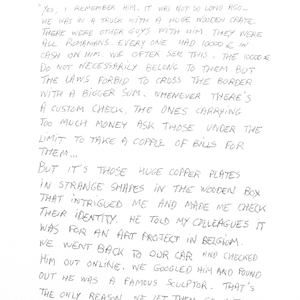 "Yes, I REMEMBER HIM. IT WAS NOT SO LONG AGO...
HE WAS IN A TRUCK WITH A HUGE WOODEN CRATE.
THERE WERE OTHER GUYS WITH HIM. THEY WERE
ALL ROMANIANS. EVERY ONE HAD 10000 € IN
CASH ON HIM. WE OFTEN SEE THIS. THE 10000 €
DO NOT NECESSARILY BELONG TO THEM BUT
THE LAWS FORBID TO CROSS THE BORDER
WITH A BIGGER SUM. WHENEVER THERE'S
A CUSTOM CHECK, THE ONES CARRYING
TOO MUCH MONEY ASK THOSE UNDER THE
LIMIT TO TAKE A COPPLE OF BILLS FOR
THEM...
BUT IT'S THOSE HUGE COPPER PLATES
IN STRANGE SHAPES IN THE WOODEN BOX
THAT INTRIGUED ME AND MADE ME CHECK
THEIR IDENTITY. HE TOLD MY COLLEAGUES IT
WAS FOR AN ART PROJECT IN BELGIUM.
WE WENT BACK TO OUR CAR AND CHECKED
HIM OUT ONLINE. WE GOOGLED HIM AND FOUND
OUT HE WAS A FAMOUS SCULPTOR. THAT'S
THE ONLY REASON WE LET THEM GO